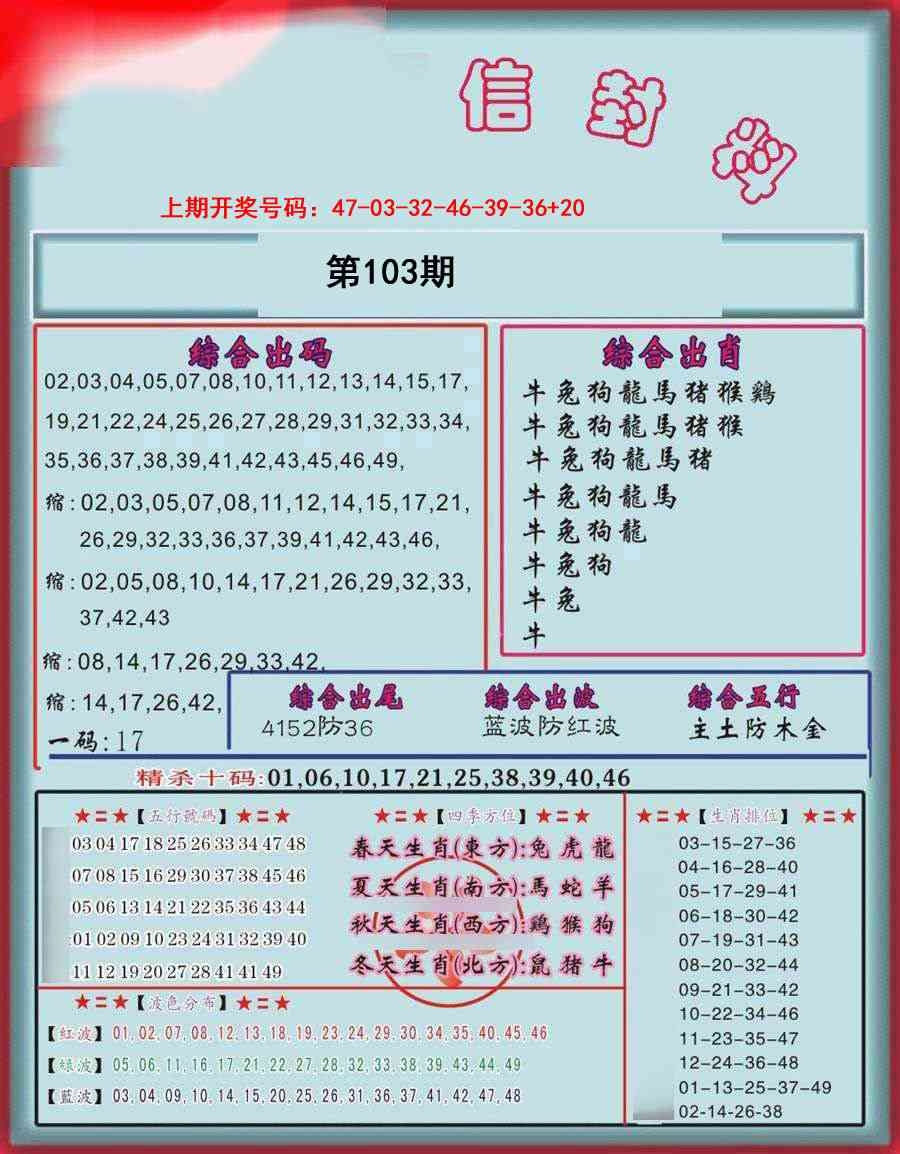 信封料
上期开奖号码：47-03-32-46-39-36+20
第103期
综合出码
02,03,04,05,07,08,10,11,12,13,14,15,17,
19,21,22,24,25,26,27,28,29,31,32,33,34,
35,36,37,38,39,41,42,43,45,46,49,
缩:02,03,05,07,08,11,12,14,15,17,21,
26,29,32,33,36,37,39,41,42,43,46,
缩:02,05,08,10,14,17,21,26,29,32,33,
37,42,43
缩:08,14,17,26,29,33,42,
缩:14,17,26,42,
一码:17
综合出肖
牛兔狗龍馬猪猴鷄
牛兔狗龍馬猪猴
牛兔狗龍馬猪
牛兔狗龍馬
牛兔狗龍
牛兔狗
牛兔
牛
综合出尾
4152防36
综合出波
蓝波防红波
综合五行
主土防木金
精杀十码:01,06,10,17,21,25,38,39,40,46
★=★【五行號碼】★=★
03 04 17 18 25 26 33 34 47 48
07 08 15 16 29 30 37 38 45 46
05 06 13 14 21 22 35 36 43 44
:01 02 09 10 23 24 31 32 39 40
11 12 19 20 27 28 41 41 49
★=★【四季方位】★=★
春天生肖(東方):兔虎龍
夏天生肖(南方):馬蛇羊
秋天生肖(西方):鷄猴狗
冬天生肖(北方):鼠猪牛
★=★【生肖排位】★=★
03-15-27-36
04-16-28-40
05-17-29-41
06-18-30-42
07-19-31-43
08-20-32-44
09-21-33-42
10-22-34-46
11-23-35-47
12-24-36-48
01-13-25-37-49
02-14-26-38
★=★【波色分布】★=★
【紅波】01,02,07,08,12,13,18,19,23,24,29,30,34,35,40,45,46
【緑波】05,06,11,16,17,21,22,27,28,32,33,38,39,43,44,49
【藍波】03,04,09,10,14,15,20,25,26,31,36,37,41,42,47,48